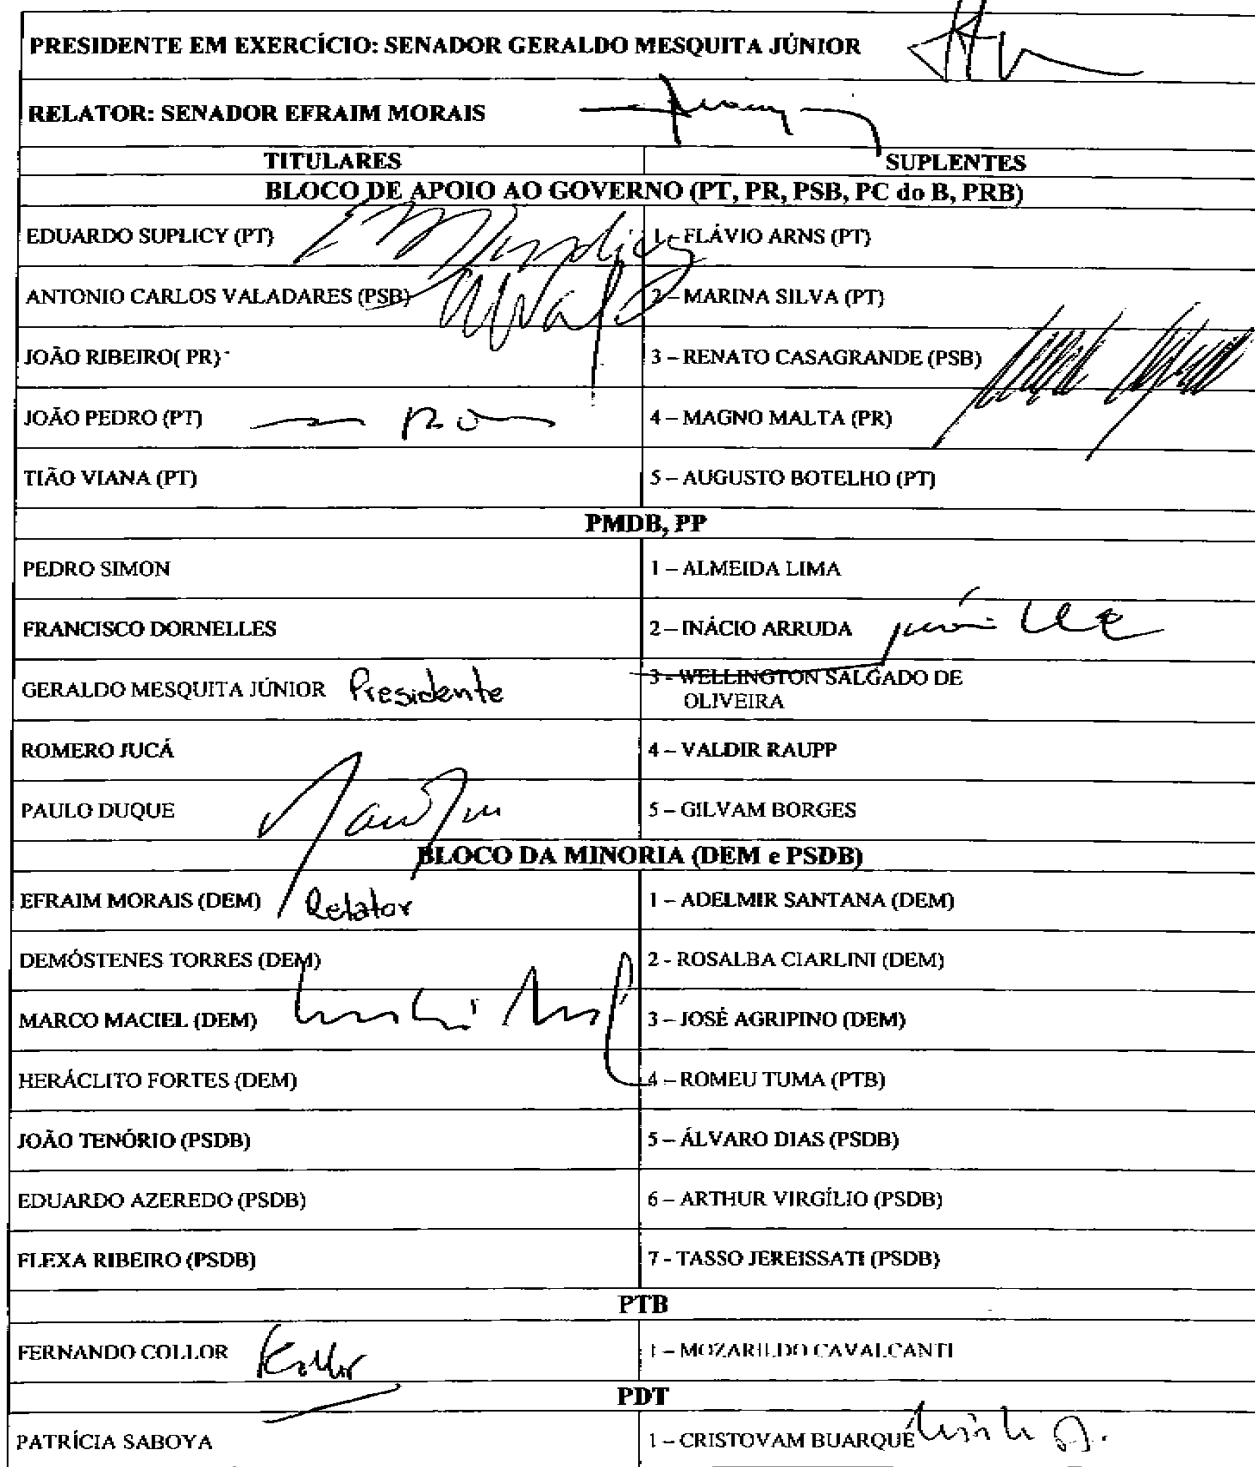 PRESIDENTE EM EXERCÍCIO: SENADOR GERALDO MESQUITA JÚNIOR
RELATOR: SENADOR EFRAIM MORAIS
TITULARES SUPLENTES
BLOCO DE APOIO AO GOVERNO (PT, PR, PSB, PC do B, PRB)
EDUARDO SUPLICY (PT) 1 – FLÁVIO ARNS (PT)
ANTONIO CARLOS VALADARES (PSB) 2 – MARINA SILVA (PT)
JOÃO RIBEIRO( PR) 3 – RENATO CASAGRANDE (PSB)
JOÃO PEDRO (PT) 4 – MAGNO MALTA (PR)
TIÃO VIANA (PT) 5 – AUGUSTO BOTELHO (PT)
PMDB, PP
PEDRO SIMON 1 – ALMEIDA LIMA
FRANCISCO DORNELLES 2 – INÁCIO ARRUDA
GERALDO MESQUITA JÚNIOR Presidente 3 - WELLINGTON SALGADO DE
OLIVEIRA
ROMERO JUCÁ 4 – VALDIR RAUPP
PAULO DUQUE 5 – GILVAM BORGES
BLOCO DA MINORIA (DEM e PSDB)
EFRAIM MORAIS (DEM) Relator 1 – ADELMIR SANTANA (DEM)
DEMÓSTENES TORRES (DEM) 2 - ROSALBA CIARLINI (DEM)
MARCO MACIEL (DEM) 3 – JOSÉ AGRIPINO (DEM)
HERÁCLITO FORTES (DEM) 4 – ROMEU TUMA (PTB)
JOÃO TENÓRIO (PSDB) 5 – ÁLVARO DIAS (PSDB)
EDUARDO AZEREDO (PSDB) 6 – ARTHUR VIRGÍLIO (PSDB)
FLEXA RIBEIRO (PSDB) 7 - TASSO JEREISSATI (PSDB)
PTB
FERNANDO COLLOR 1 – MOZARILDO CAVALCANTI
PDT
PATRÍCIA SABOYA 1 – CRISTOVAM BUARQUE